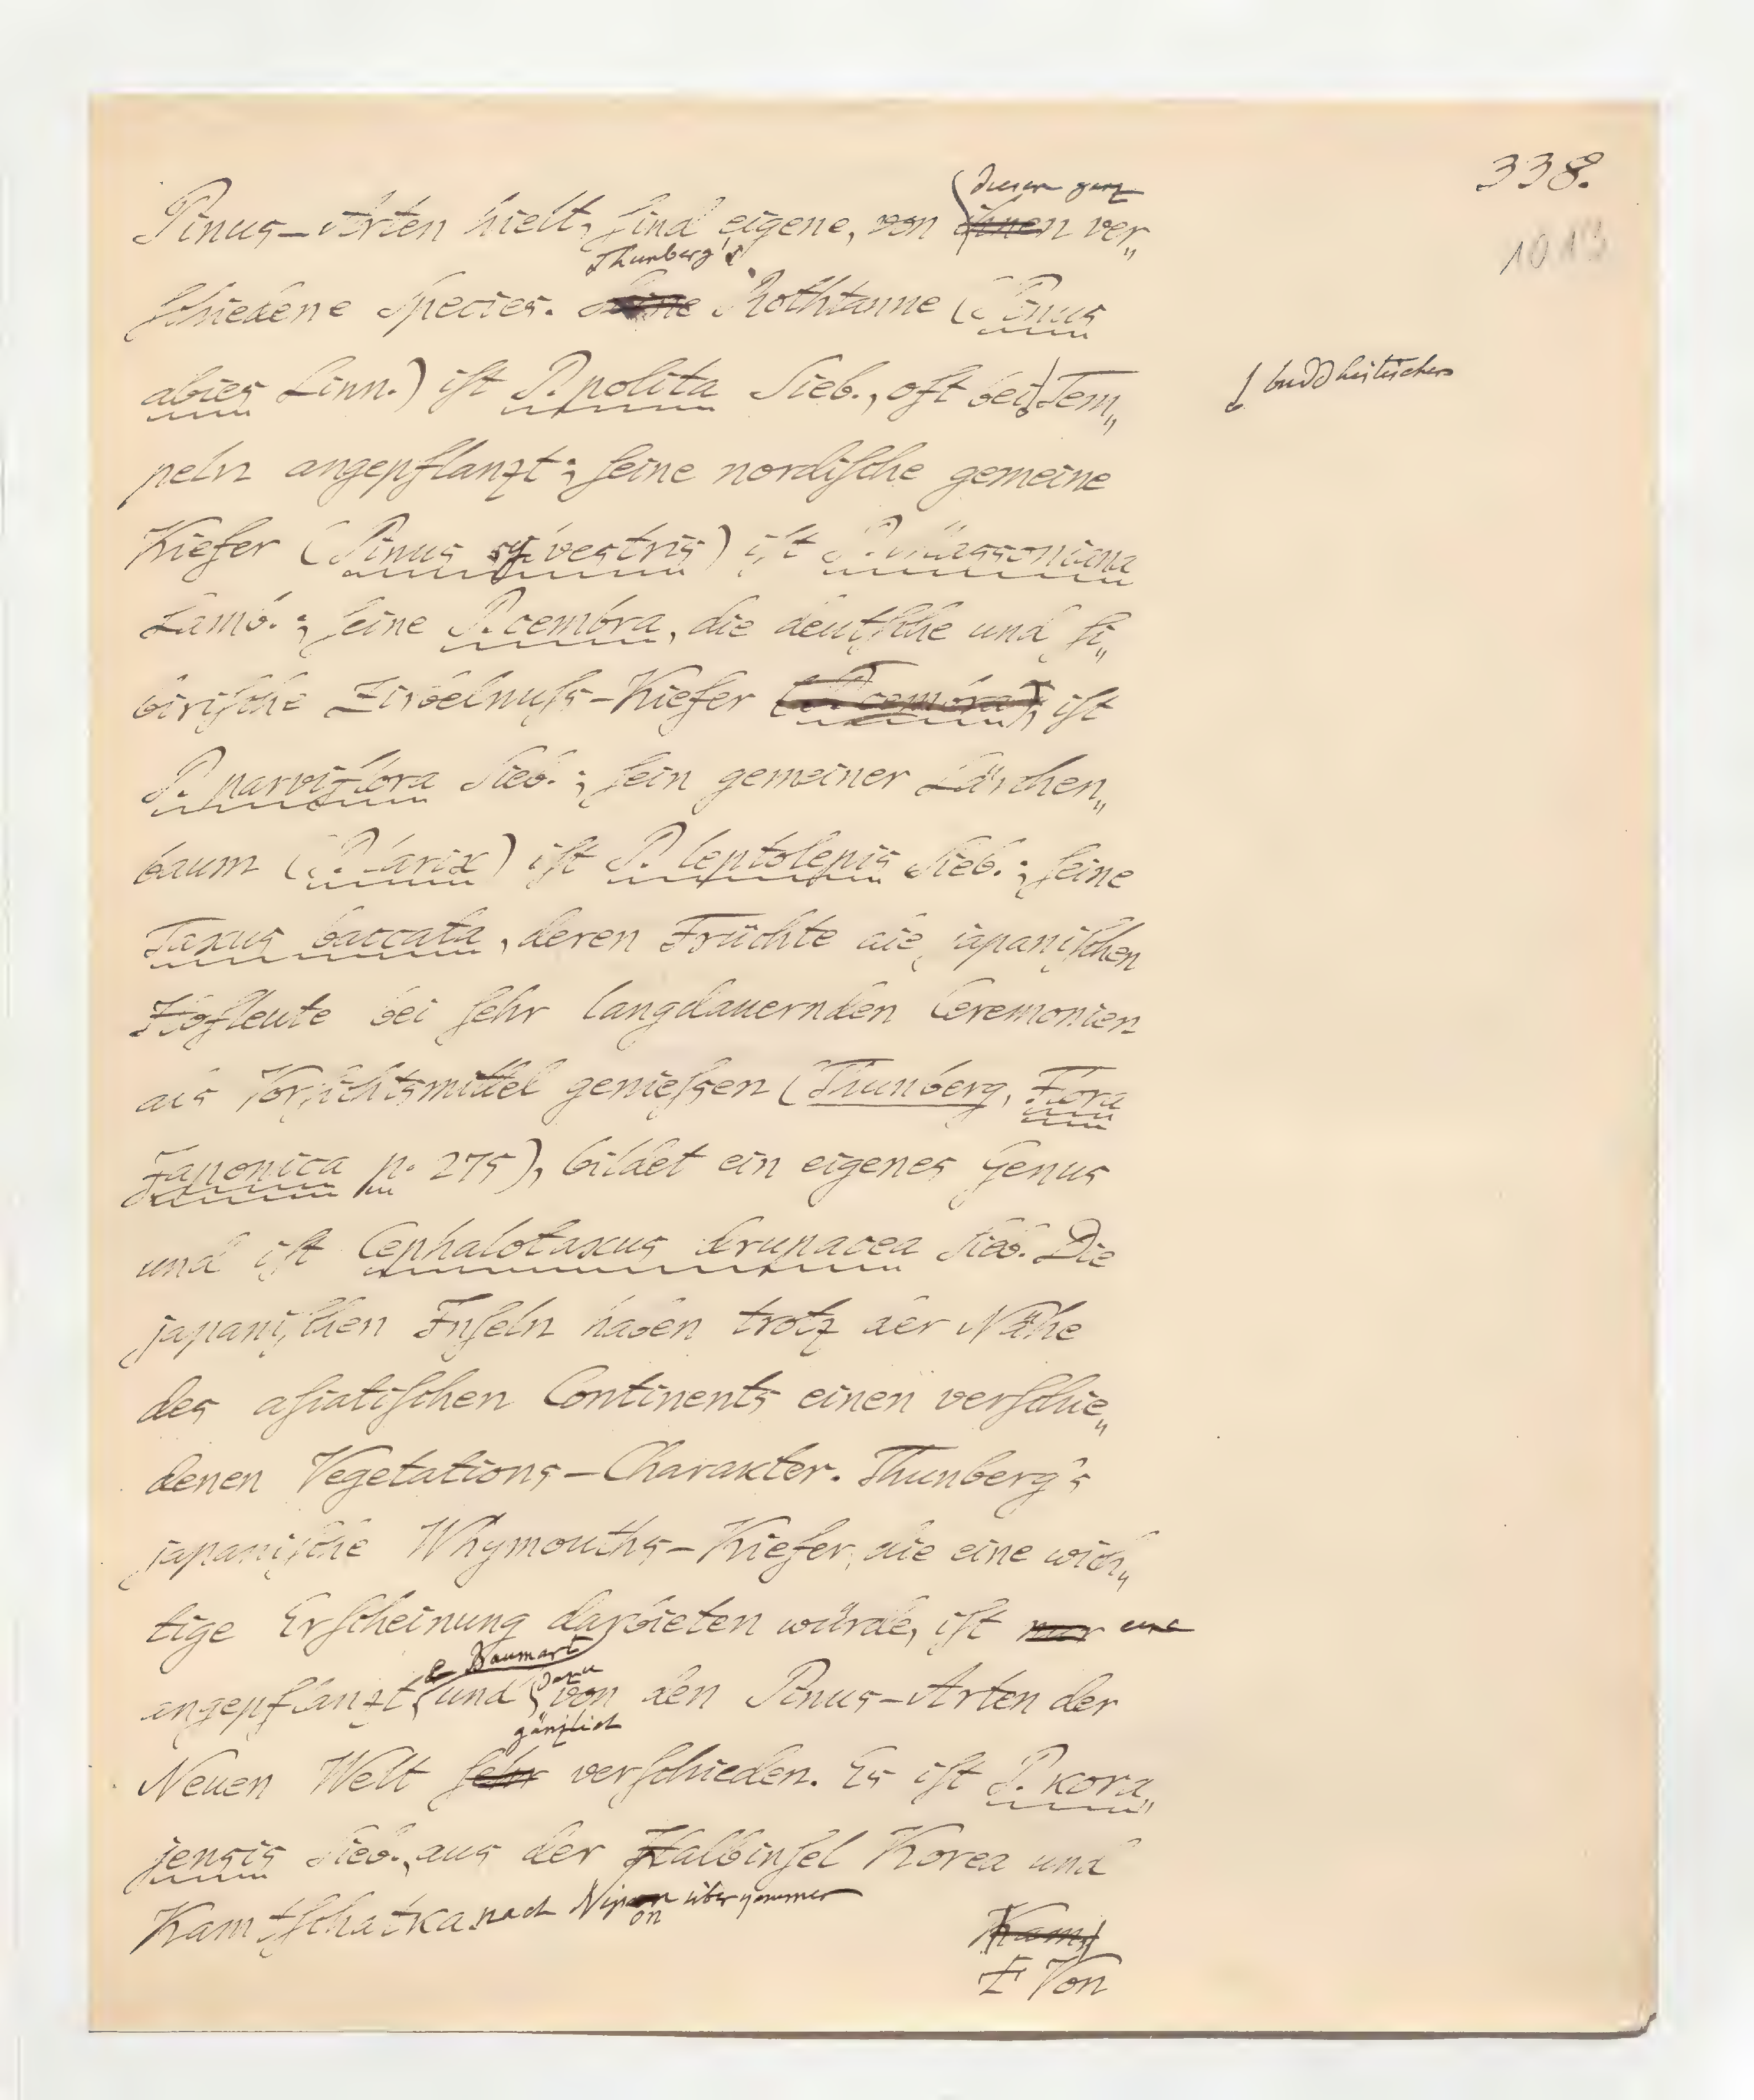 338.
1013
diesen ganz
Pinus-Arten hielt, ſind eigene, von ihnen ver„
Thunberg's
ſchiedene Species. Seine Rothtanne (Pinus
abies Linn.) iſt P. polita Sieb., oft bei Tem„
buddhistischen
peln angepflanzt; ſeine nordiſche gemeine
Kiefer (Pinus sylvestris) iſt P. Massoniana
Lamb.; ſeine P. cembra, die deutſche und ſi„
biriſche Zirbelnuſs-Kiefer (P. cembra), iſt
P. parviflora Sieb.; ſein gemeiner Lärchen„
baum (P. larix) iſt P. leptolepis Sieb.; ſeine
Taxus baccata, deren Früchte die japaniſchen
Hofleute bei ſehr langdauernden Ceremonien
als Vorſichtsmittel genieſsen (Thunberg, Flora
Japonica p. 275), bildet ein eigenes Genus
und iſt Cephalotaxus drupacea Sieb. Die
japaniſchen Inſeln haben trotz der Nähe
des aſiatiſchen Continents einen verſchie„
denen Vegetations-Charakter. Thunberg's
japaniſche Whymouths-Kiefer, die eine wich„
tige Erſcheinung darbieten würde, iſt nur eine
e Baumart
dazu
angepflanzt und von den Pinus-Arten der
gänzlich
Neuen Welt ſehr verſchieden. Es iſt P. kora„
jensis Sieb., aus der Halbinſel Korea und
Kamtſchatka nach Nipon übergenommen
on
Kamt
Von